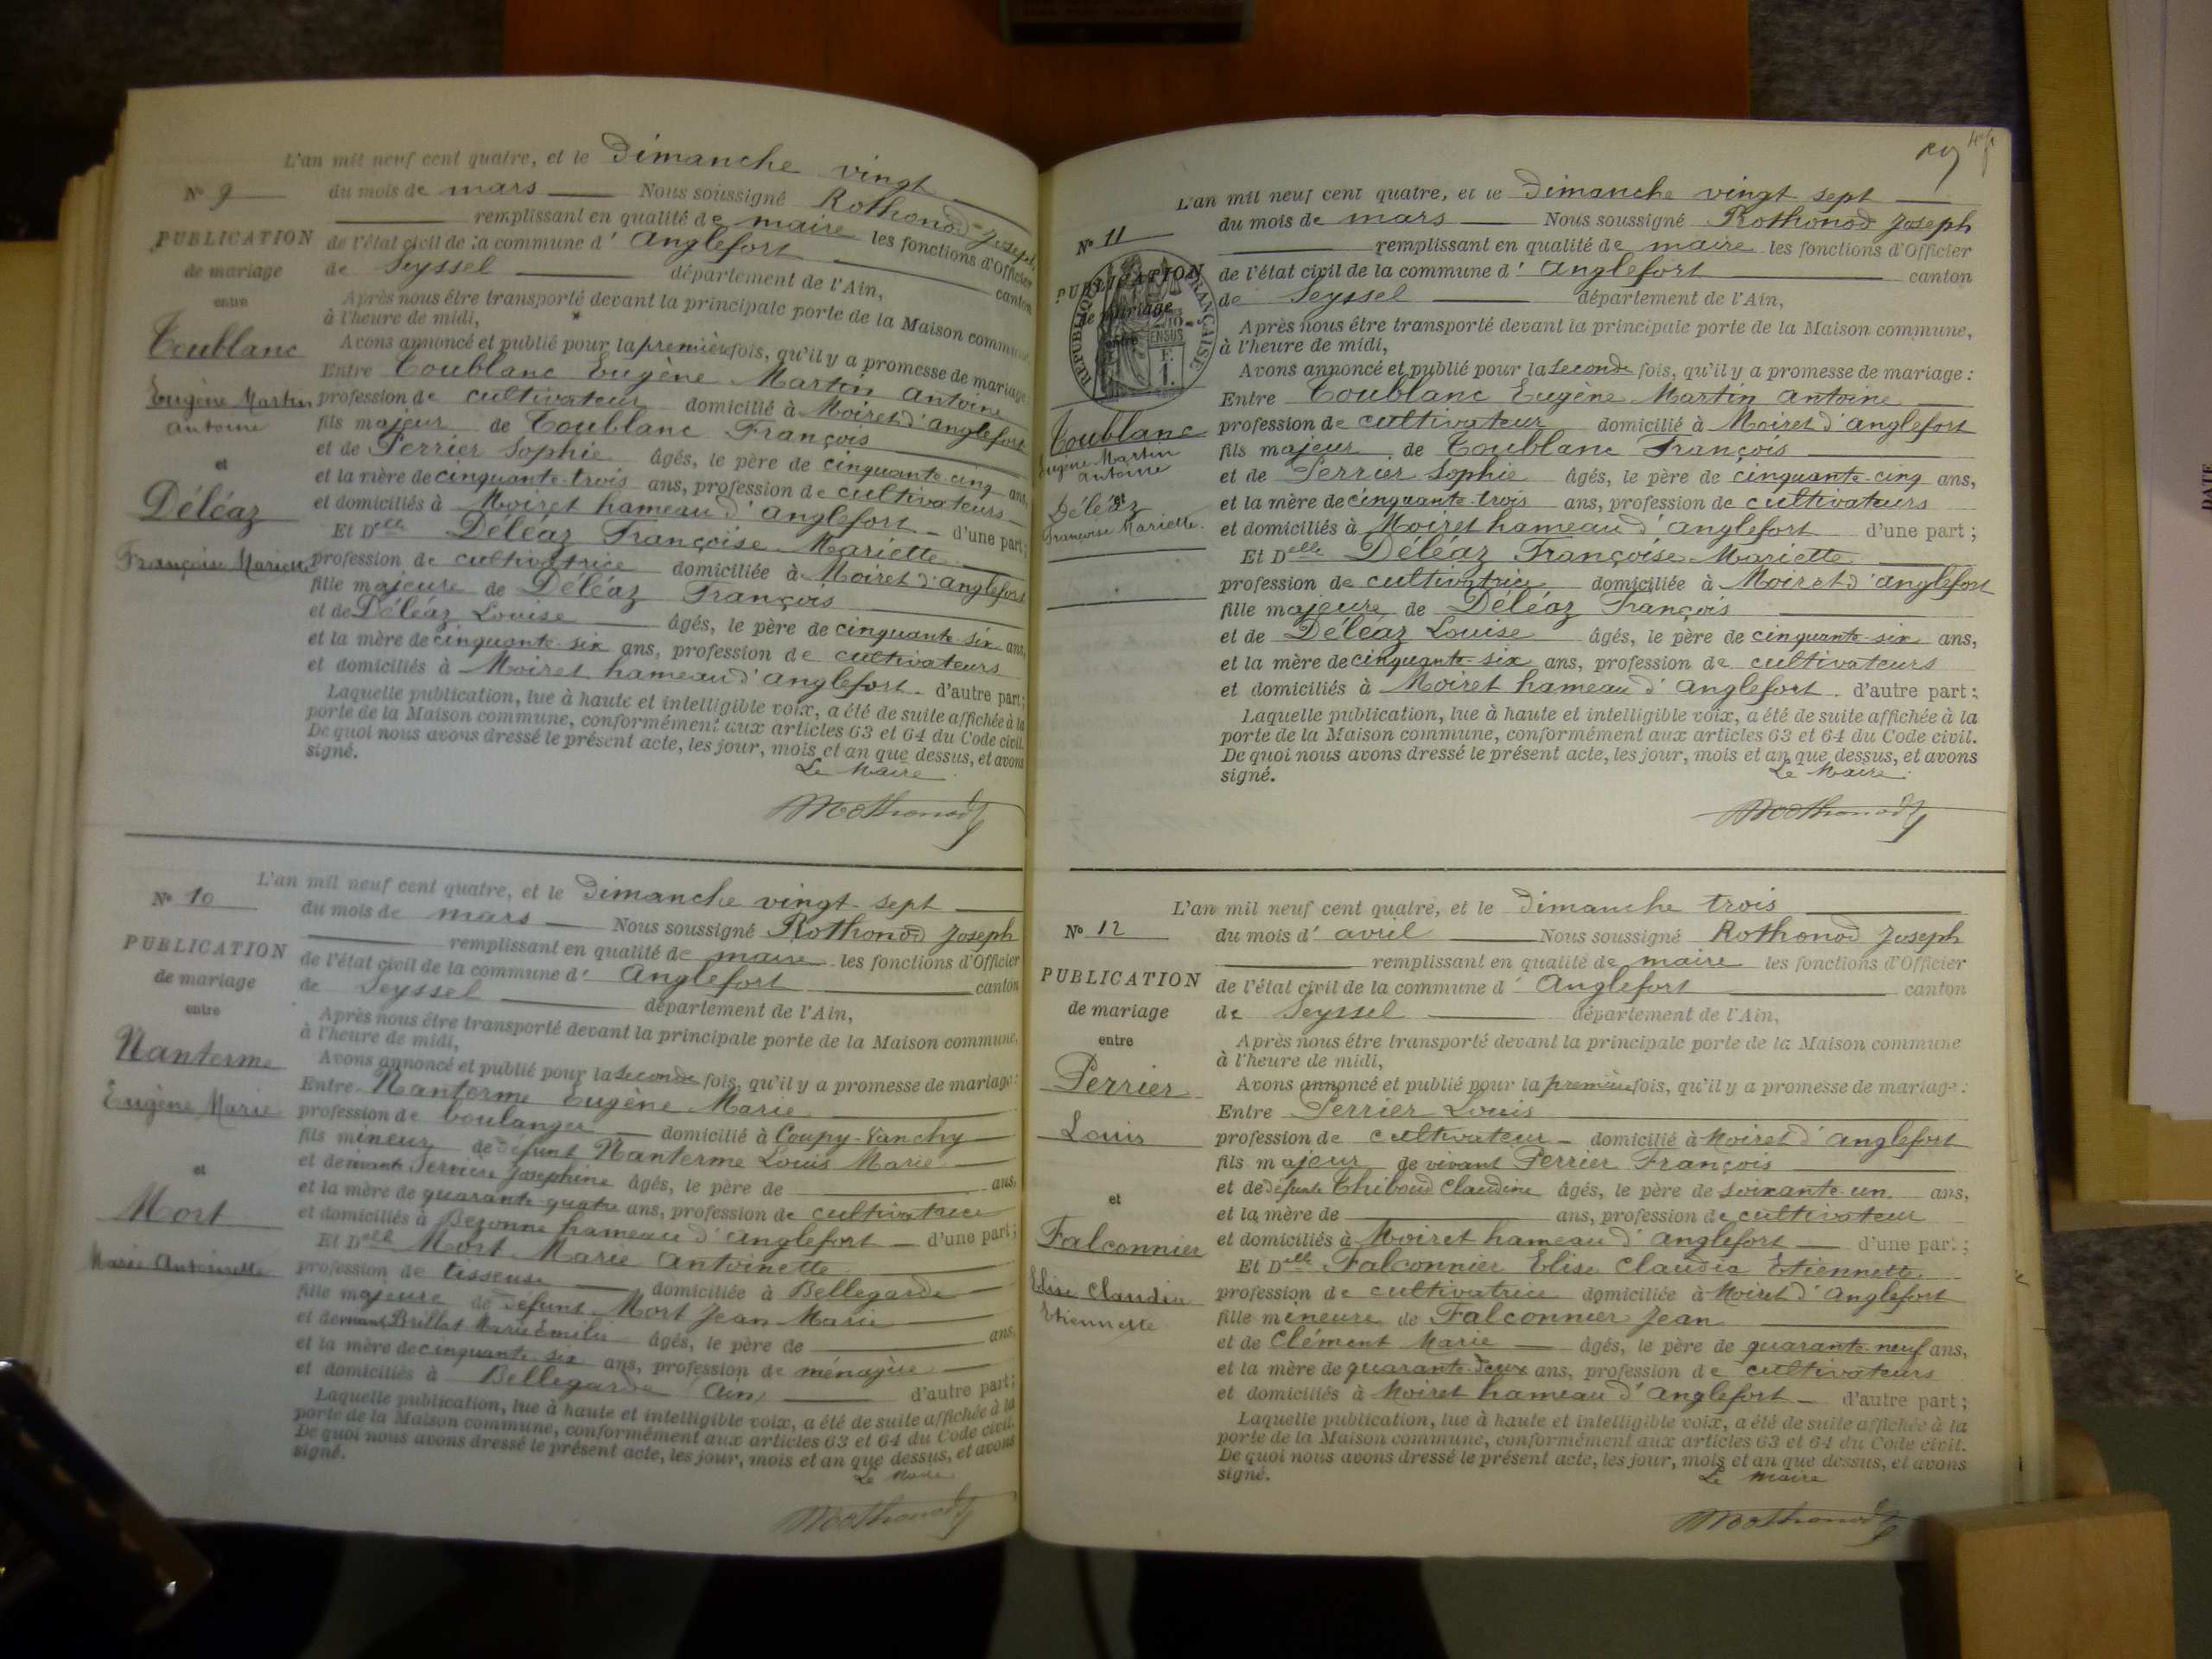 L'an mil neuf cent quatre, et le Dimanche vingt
Nº 9
du mois de mars Nous soussigné Rothonod Joseph
remplissant en qualité de maire les fonctions d'Officier
PUBLICATION
de l'état civil de la commune d' Anglefort canton
de mariage
de Seyssel département de l'Ain,
entre
Après nous être transporté devant la principale porte de la Maison commune,
à l'heure de midi,
Avons annoncé et publié pour la première fois, qu'il y a promesse de mariage :
Toublanc
Entre Toublanc Eugène Martin Antoine
Eugène Martin
profession de cultivateur domicilié à Moiret d'Anglefort
Antoine
fils majeur de Toublanc François
et de Perrier Sophie âgés, le père de cinquante cinq ans,
et
et la mère de cinquante trois ans, profession de cultivateurs
et domiciliés à Moiret hameau d'Anglefort d'une part ;
Déléaz
Et Delle Déléaz Françoise Mariette
Françoise Mariette
profession de cultivatrice domiciliée à Moiret d'Anglefort
fille majeure de Déléaz François
et de Déléaz Louise âgés, le père de cinquante six ans,
et la mère de cinquante six ans, profession de cultivateurs
et domiciliés à Moiret hameau d'Anglefort d'autre part ;
Laquelle publication, lue à haute et intelligible voix, a été de suite affichée à la
porte de la Maison commune, conformément aux articles 63 et 64 du Code civil.
De quoi nous avons dressé le présent acte, les jour, mois et an que dessus, et avons
signé.
Le Maire
Rothonod J
L'an mil neuf cent quatre, et le Dimanche vingt-sept
Nº 10
du mois de mars Nous soussigné Rothonod Joseph
remplissant en qualité de maire les fonctions d'Officier
PUBLICATION
de l'état civil de la commune d' Anglefort canton
de mariage
de Seyssel département de l'Ain,
entre
Après nous être transporté devant la principale porte de la Maison commune,
à l'heure de midi,
Avons annoncé et publié pour la seconde fois, qu'il y a promesse de mariage :
Nanterme
Entre Nanterme Eugène Marie
Eugène Marie
profession de boulanger domicilié à Coupy-Vanchy
fils mineur de défunt Nanterme Louis Marie
et de vivante Serrière Joséphine âgés, le père de ans,
et
et la mère de quarante quatre ans, profession de cultivatrice
et domiciliés à Bezonne hameau d'Anglefort d'une part ;
Mort
Et Delle Mort Marie Antoinette
Marie Antoinette
profession de tisseuse domiciliée à Bellegarde
fille majeure de défunt Mort Jean Marie
et de vivante Brillat Marie Emilie âgés, le père de ans,
et la mère de cinquante six ans, profession de ménagère
et domiciliés à Bellegarde (Ain) d'autre part ;
Laquelle publication, lue à haute et intelligible voix, a été de suite affichée à la
porte de la Maison commune, conformément aux articles 63 et 64 du Code civil.
De quoi nous avons dressé le présent acte, les jour, mois et an que dessus, et avons
signé.
Le Maire
Rothonod J
L'an mil neuf cent quatre, et le Dimanche vingt sept
du mois de mars Nous soussigné Rothonod Joseph
Nº 11
remplissant en qualité de maire les fonctions d'Officier
PUBLICATION
de l'état civil de la commune d' Anglefort canton
de mariage
de Seyssel département de l'Ain,
entre
RÉPUBLIQUE FRANÇAISE
Après nous être transporté devant la principale porte de la Maison commune,
à l'heure de midi,
Avons annoncé et publié pour la seconde fois, qu'il y a promesse de mariage :
Entre Toublanc Eugène Martin Antoine
Toublanc
profession de cultivateur domicilié à Moiret d'Anglefort
Eugène Martin
Antoine
fils majeur de Toublanc François
et de Perrier Sophie âgés, le père de cinquante-cinq ans,
et
Déléaz
et la mère de cinquante-trois ans, profession de cultivateurs
Françoise Mariette
et domiciliés à Moiret hameau d'Anglefort d'une part ;
Et Delle Déléaz Françoise Mariette
profession de cultivatrice domiciliée à Moiret d'Anglefort
fille majeure de Déléaz François
et de Déléaz Louise âgés, le père de cinquante-six ans,
et la mère de cinquante-six ans, profession de cultivateurs
et domiciliés à Moiret hameau d'Anglefort d'autre part ;
Laquelle publication, lue à haute et intelligible voix, a été de suite affichée à la
porte de la Maison commune, conformément aux articles 63 et 64 du Code civil.
De quoi nous avons dressé le présent acte, les jour, mois et an que dessus, et avons
signé.
Le Maire
Rothonod J
L'an mil neuf cent quatre, et le Dimanche trois
Nº 12
du mois d' avril Nous soussigné Rothonod Joseph
remplissant en qualité de maire les fonctions d'Officier
PUBLICATION
de l'état civil de la commune d' Anglefort canton
de mariage
de Seyssel département de l'Ain,
entre
Après nous être transporté devant la principale porte de la Maison commune
à l'heure de midi,
Avons annoncé et publié pour la première fois, qu'il y a promesse de mariage :
Perrier
Entre Perrier Louis
Louis
profession de cultivateur domicilié à Moiret d'Anglefort
fils majeur de vivant Perrier François
et de défunte Thiboud Claudine âgés, le père de soixante-un ans,
et
et la mère de ans, profession de cultivateur
et domiciliés à Moiret hameau d'Anglefort d'une part ;
Falconnier
Et Delle Falconnier Elise Claudia Etiennette
Elise Claudia
profession de cultivatrice domiciliée à Moiret d'Anglefort
Etiennette
fille mineure de Falconnier Jean
et de Clément Marie âgés, le père de quarante-neuf ans,
et la mère de quarante-deux ans, profession de cultivateurs
et domiciliés à Moiret hameau d'Anglefort d'autre part ;
Laquelle publication, lue à haute et intelligible voix, a été de suite affichée à la
porte de la Maison commune, conformément aux articles 63 et 64 du Code civil.
De quoi nous avons dressé le présent acte, les jour, mois et an que dessus, et avons
signé.
Le Maire
Rothonod J
DATE